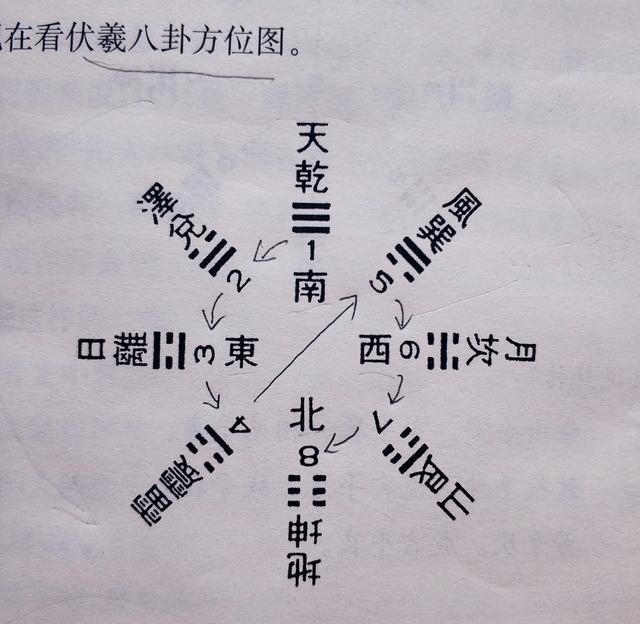 在看伏羲八卦方位图。
天乾
1
南
澤兌
2
日離
3
東
雷震
4
風巽
5
月坎
6
西
山艮
7
北
8
地坤